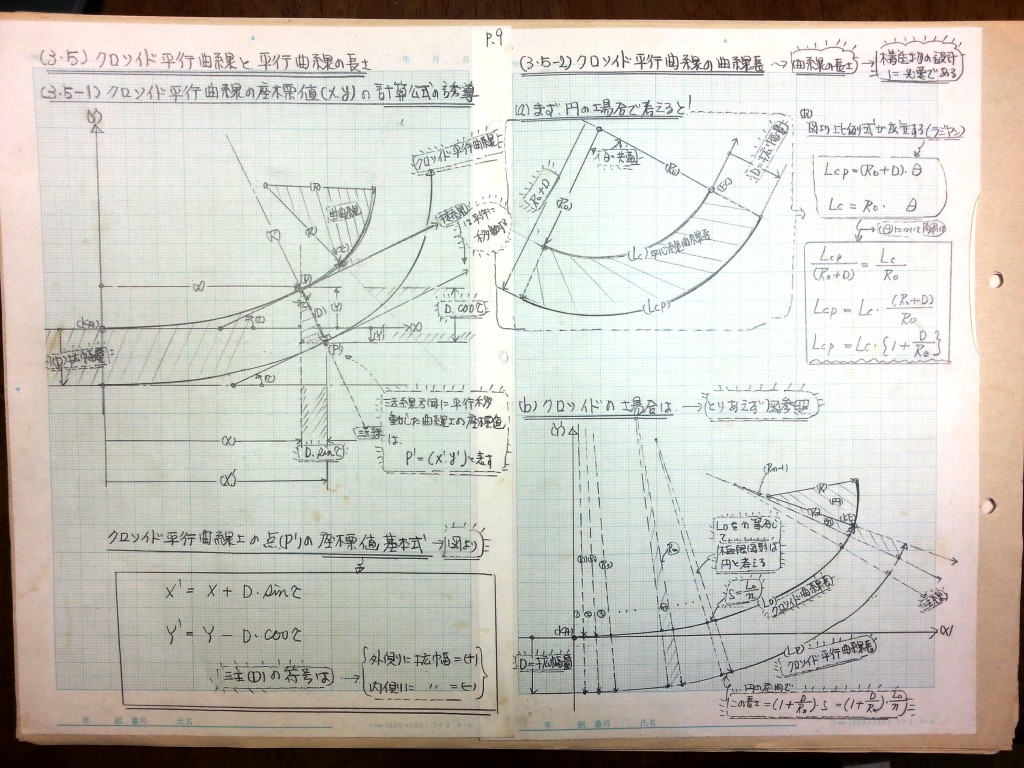 P.9
(3.5) クロソイド平行曲線と平行曲線の長さ
(3.5-1) クロソイド平行曲線の座標値(x.y)の計算公式の誘導
(Y)
クロソイド平行曲線
(R)
接線
は平行に
移動する
(P)
(D)
D.cosτ
(KA)
(D)拡幅量
(τ)
(P')
(X)
法線
D.sinτ
(X')
法線方向に平行移
動した曲線上の座標値
は.
P'=(x'.y')と表す
クロソイド平行曲線上の点(P')の座標値基本式→図より
X' = X + D.sinτ
Y' = Y − D.cosτ
注(D)の符号は→
外側に拡幅=(+)
内側に 〃 =(−)
年 組 番号 氏名
(3.5-2) クロソイド平行曲線の曲線長
曲線の長さ
構造物の設計
に必要である
(a) まず.円の場合で考えると!
(θ・共通)
(R0)
R0+D
(R0)
(EC)
D=拡幅量
(Lc)中心線曲線長
(Lcp)
図より比例式が成立する(ラジアン)
Lcp=(R0+D).θ
Lc = R0. θ
Lcp/(R0+D) = Lc/R0
Lcp = Lc.(R0+D)/R0
Lcp = Lc.{1+D/R0}
(b) クロソイドの場合は. →とりあえず図参照
(Y)
(Rn-1)
(R)
L0をn等分し
て
極限図形は
円と考える
S=L0/n
L0
クロソイド曲線長
法線
(KA)
(X)
D=拡幅量
(Lp)
クロソイド平行曲線長
この長さ=(1+D/Rn).S=(1+D/Rn).L0/n
年 組 番号 氏名